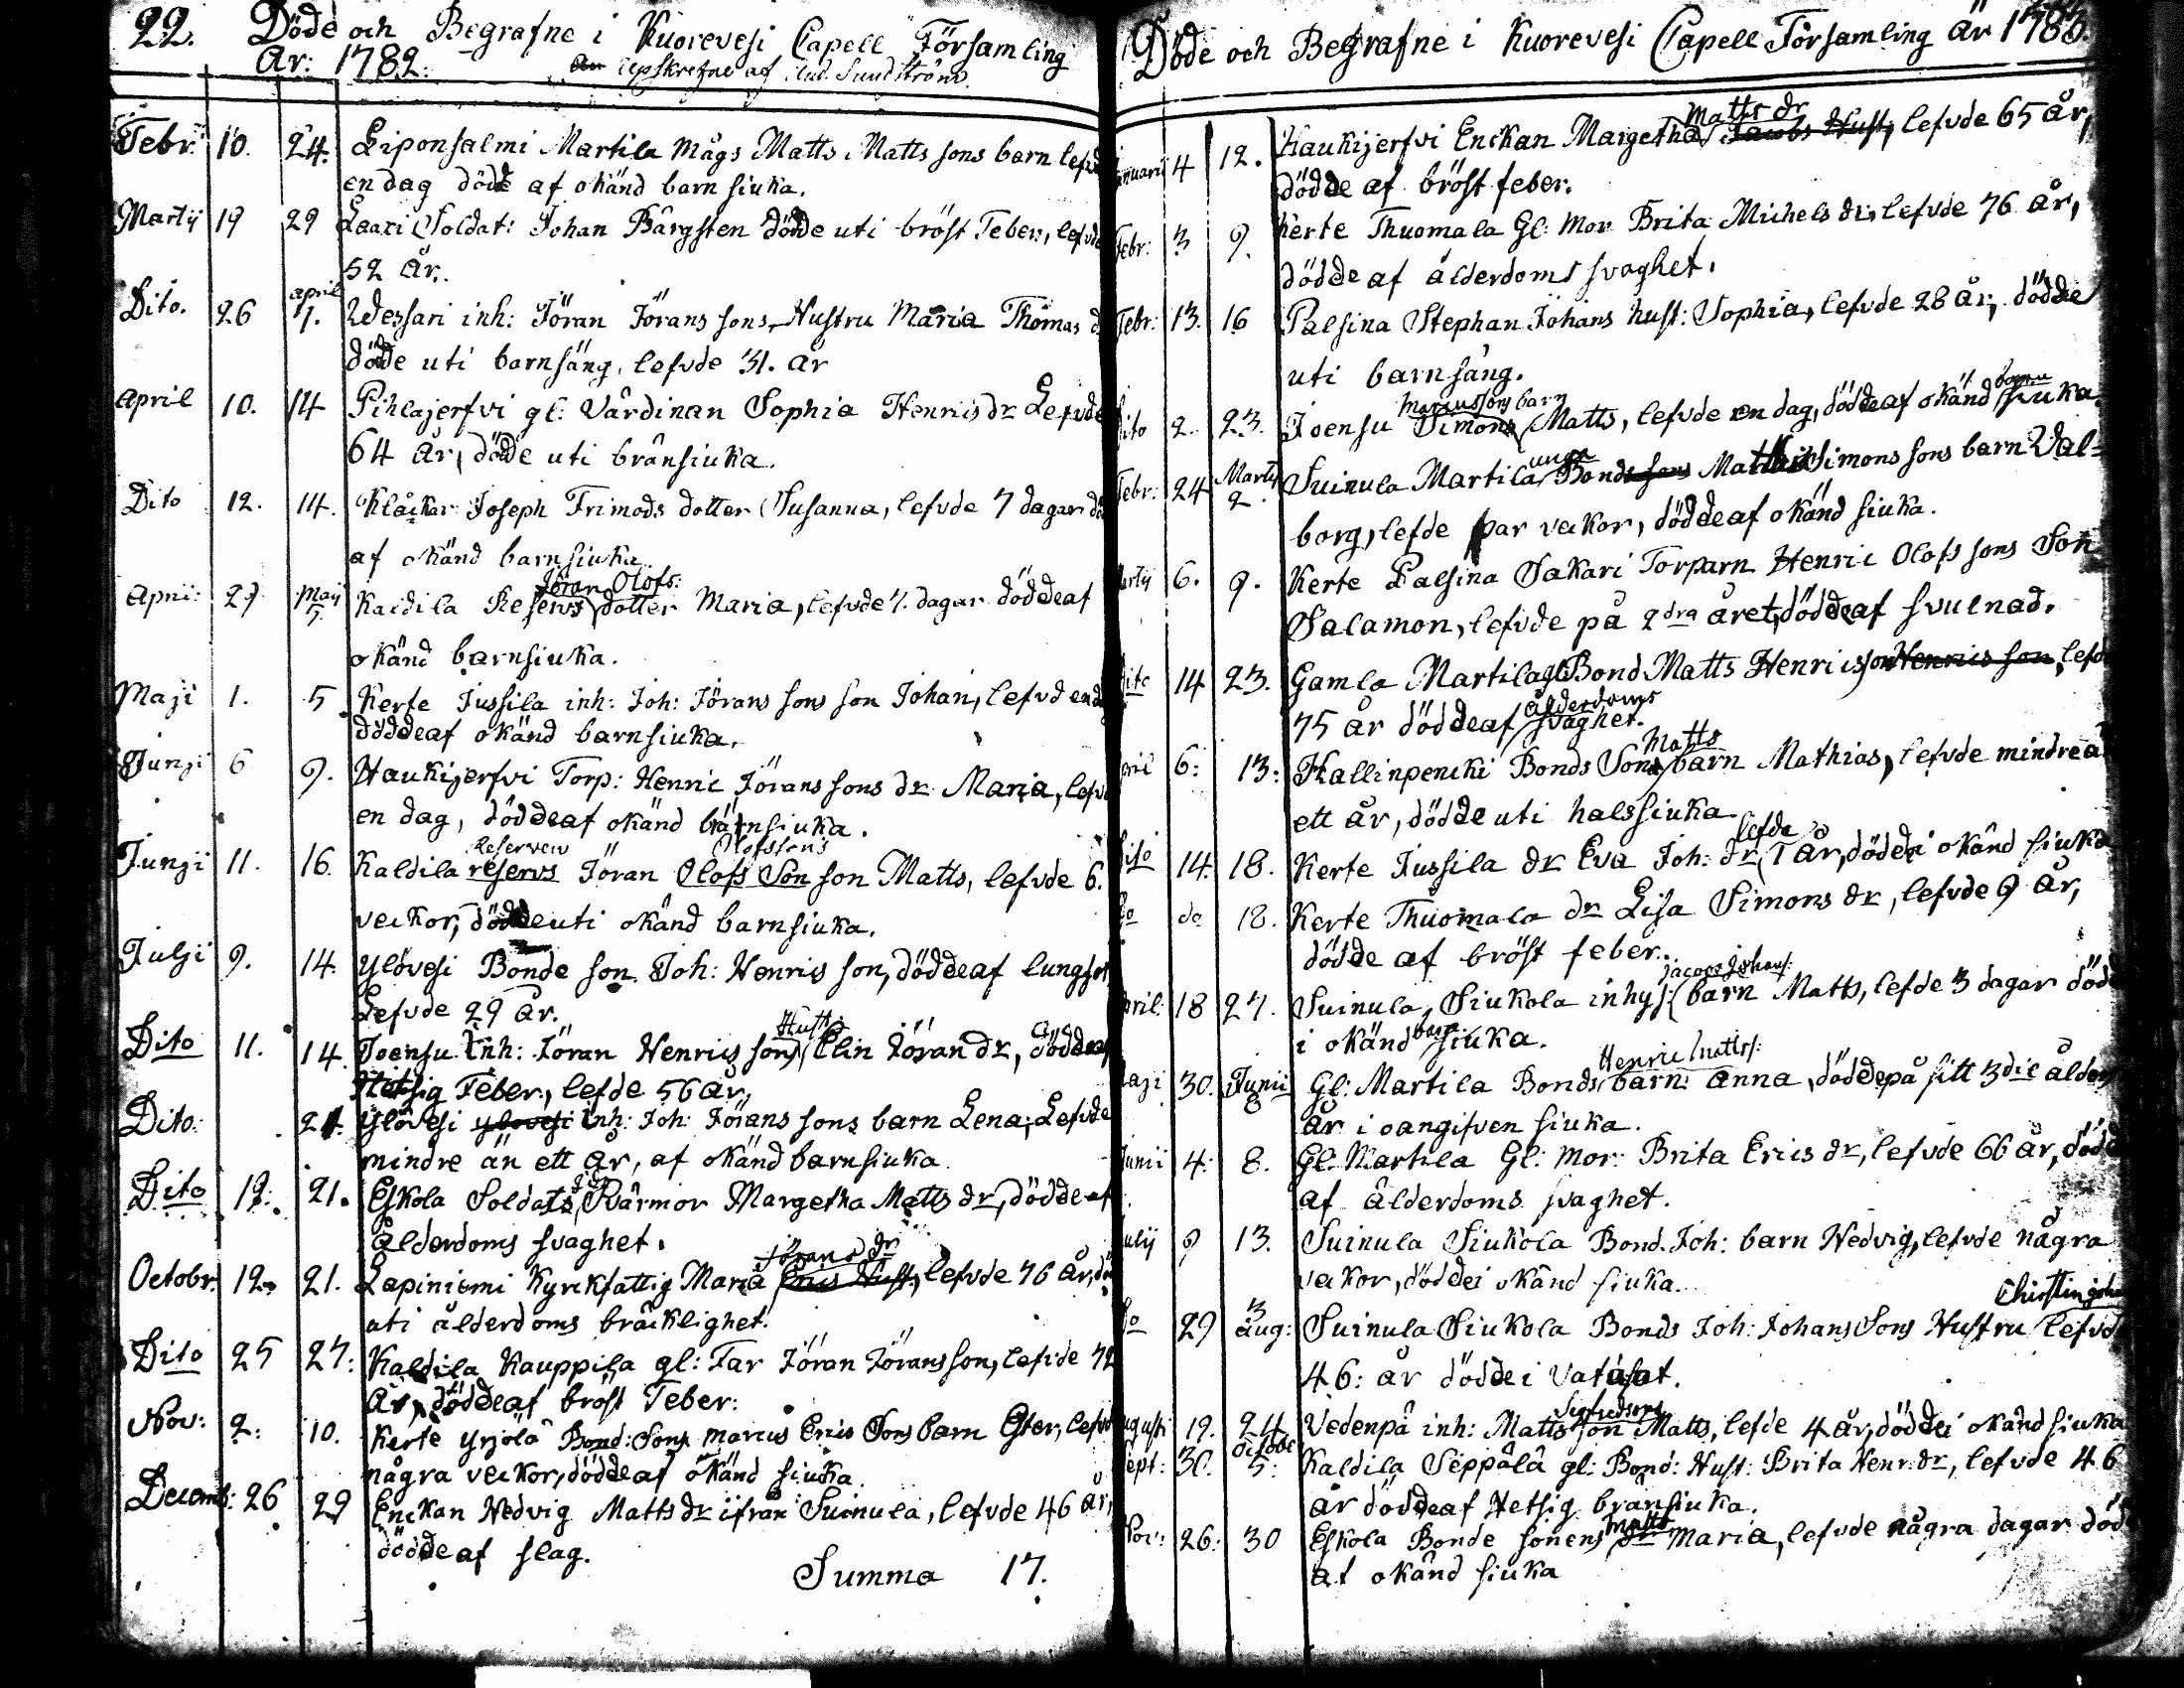 22. Döde och Begrafne i Kuorevesi Capell Församling
År: 1782. Upskrefne af And. Sundström.
Febr: 10. 24. Liponsalmi Martila mågs Matts Matts sons barn lefvde
en dag dödde af okänd barn siuka.
Martij 19 29 Laari Soldat: Johan Bärgsten dödde uti bröst Feber, lefvde
52 år.
april
Dito. 26 7. Wessari inh: Jöran Jörans sons Hustru Maria Thomas d
dödde uti barnsäng, lefvde 31. år
April 10. 14 Pihlajerfvi gl: Värdinan Sophia Henrics dr Lefvde
64 år, dödde uti brånsiuka.
Dito 12. 14. Klåckar Joseph Frimods dotter Susanna, lefvde 7 dagar dö
af okänd barnsiuka.
Jöran Olofs:
April: 29 Maij 5. Kaldila Reservs dotter Maria, lefvde 7. dagar döddeaf
okänd barnsiuka.
Maji 1. 5 Kerte Jussila inh: Joh: Jörans sons son Johan, lefvd end
döddeaf okänd barnsiuka.
Junji 6 9. Haukijerfvi Torp: Henric Jörans sons dr Maria, lefv
en dag, döddeaf okänd barnsiuka.
Reserven Olofssons
Junji 11. 16. Kaldila reservs Jöran Olofs Son son Matts, lefvde 6.
veckor, dödde uti okänd barnsiuka.
Julji 9. 14. Ylövesi Bonde son Joh: Henrics son, döddeaf lungsot,
Lefvde 29 år.
Hust:
Dito 11. 14 Joensu Inh: Jöran Henrics sons Elin Jöran dr, döddeaf
Hetsig Feber, lefde 56 år,
Dito: 21. Ylövesi ylövesi Inh: Joh: Jörans sons barn Lena, Lefvde
mindre än ett år, af okänd barnsiuka
Dito 12. 21. Eskola Soldats Svärmor Margetha Matts dr, döddeaf
Ålderdoms svaghet.
Jörans dr
Octobr. 12. 21. Lapiniemi Kyrckfattig Maria Erics Hust, lefvde 76 år, dö
uti ålderdoms bräcklighet.
Dito 25 27. Kaldila Kauppila gl: Far Jöran Jöransson, lefvde 72
År, döddeaf bröst Feber:
Nov: 2. 10. Kerte Yrjölä Bond: Sons Marcus Erics Sons barn Ester, lefvd
några veckor, döddeaf okänd siuka
Decemb: 26 29 Enckan Hedvig Matts dr ifrån Suinula, lefvde 46 år,
döddeaf slag.
Summa 17.
Döde och Begrafne i Kuorevesi Capell Församling år 1783.
Matts dr
Januarii 4 12. Haukijerfvi Enckan Margetha Jacobs Hust, lefvde 65 år,
dödde af bröst feber.
Febr: 3 9. Kerte Thuomala Gl: Mor Brita Michels dr, lefvde 76 år,
dödde af ålderdoms svaghet.
Febr: 13. 16 Palsina Stephan Johans hust: Sophia, lefvde 28 år, dödde
uti barnsäng.
Marcussons barn barn
Dito 2. 23. Joensu Simons Matts, lefvde en dag, döddeaf okänd siuka.
unga
Febr: 24 Martij 2. Suinula Martila Bonds sons Matts Simons sons barn Wal-
borg, lefde par veckor, döddeaf okänd siuka.
Martij 6. 9. Kerte Palsina Sakari Torparn Henric Olofs sons Son
Salamon, lefvde på 2dra året, döddeaf svulnad.
Dito 14 23. Gamla Martila gl: Bond Matts Henricsson Henrics son, lefd
ålderdoms
75 år döddeaf svaghet.
Matts
April 6: 13: Hallinpencki Bonds Sons barn Mathias, lefvde mindre ä
ett år, dödde uti halssiuka
lefde
Dito 14. 18. Kerte Jussila dr Eva Joh: dr 1 år, döddei okänd siuka
Do do 18. Kerte Thuomala dr Lisa Simons dr, lefvde 9 år,
dödde af bröst feber.
Jacobs Johans:
April: 18 27. Suinula, Siukola inhys: barn Matts, lefde 3 dagar död
i okänd barn siuka.
Henric Matts:
Maji 30. Junii 8 Gl: Martila Bonds barn: Anna, döddepå sitt 3die ålders
år i oangifven siuka.
Junii 4: 8. Gl: Martila Gl: Mor: Brita Erics dr, lefvde 66 år, död
af ålderdoms svaghet.
Julij 9 13. Suinula Siukola Bond. Joh: barn Hedvig, lefvde några
veckor, döddei okänd siuka.
Christin Joha
Do 29 3 Aug: Suinula Siukola Bonds Joh: Johans Sons Hustru lefvd
46: år döddei Vatusot.
Sigfredsons
Augusti 19. 24 Vedenpä inh: Matts son Matts, lefde 4 år, döddei okänd siuka
Sept: 30. Octobr 5: Kaldila Seppälä gl: Bond: Hust: Brita Henr: dr, lefvde 46
år döddeaf Hetsig brånsiuka.
Matts
Nov: 26: 30 Eskola Bonde sonens dr Maria, lefvde några dagar död
af okänd siuka